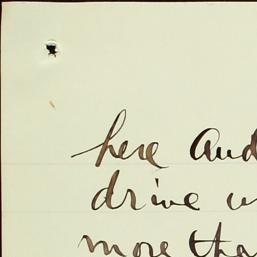 here And
drive
more tha